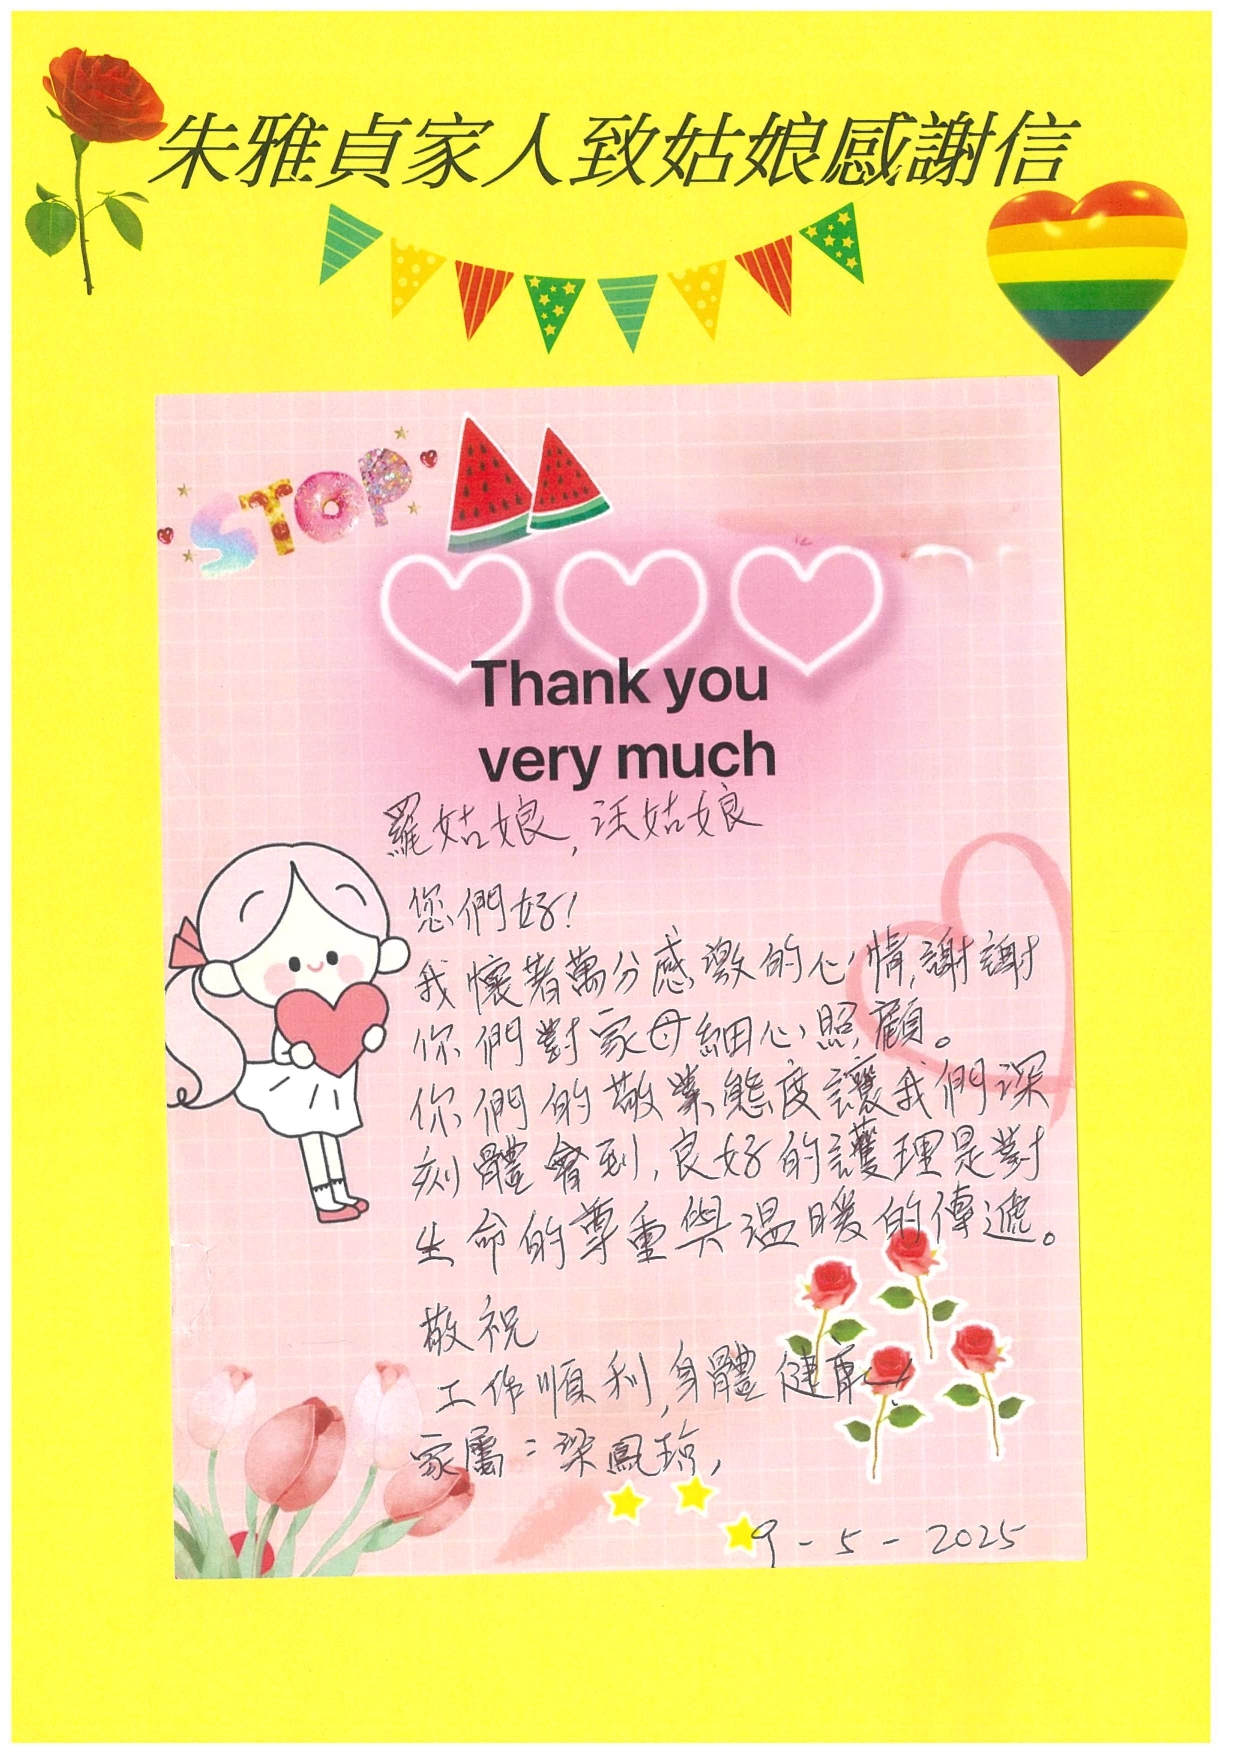 朱雅貞家人致姑娘感謝信
STOP
Thank you
very much
羅姑娘, 汪姑娘
您們好!
我懷着萬分感激的心情,謝謝
你們對家母細心照顧。
你們的敬業態度讓我們深
刻體會到,良好的護理是對
生命的尊重與溫暖的傳遞。
敬祝
工作順利,身體健康
家屬:梁鳳琼,
9-5-2025